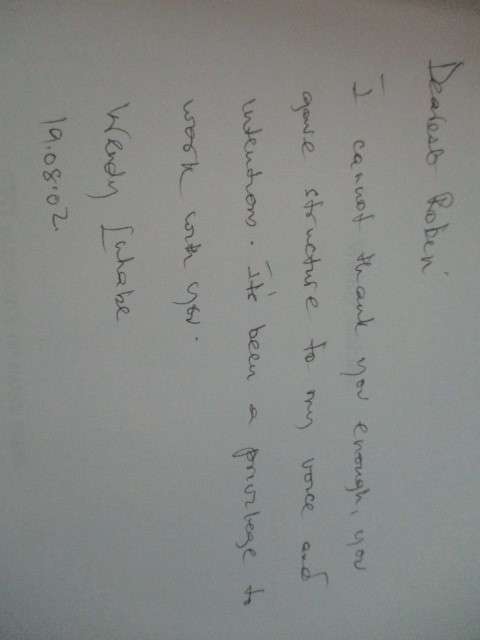 Dearest Robin
I cannot thank you enough, you
gave structure to my voice and
intentions. It's been a privilege to
work with you.
Wendy Luhabe
19.08.02